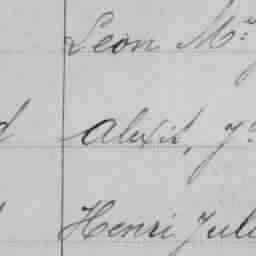 Leon M
d Alexit, J
Henri Jul